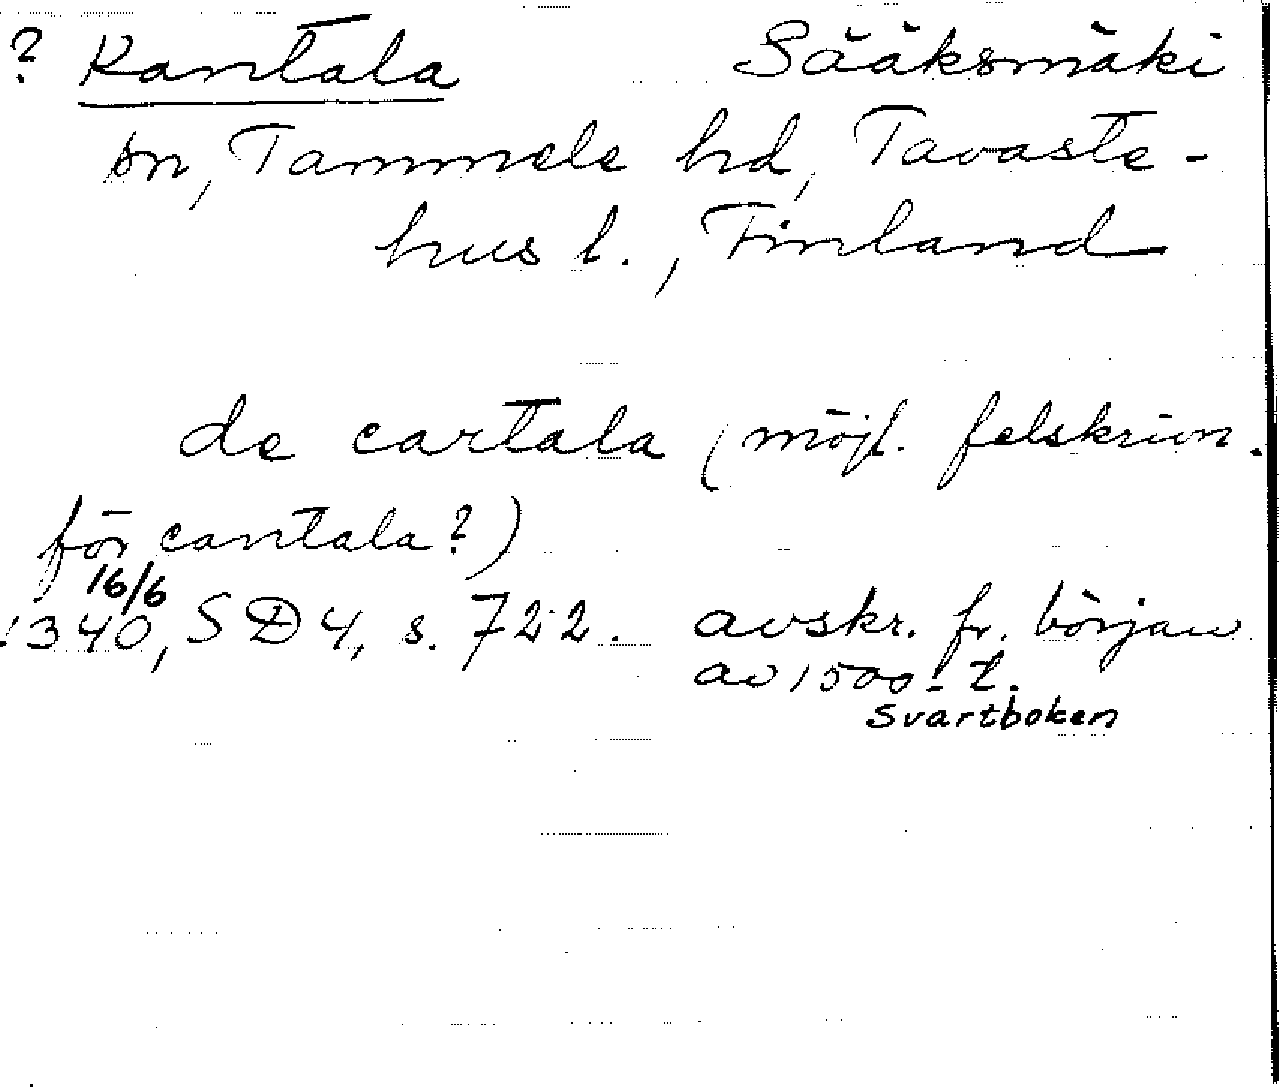 ? Kantala Sääksmäki
sn, Tammela hd, Tavaste-
hus l., Finland
de cartala (möjl. felskrivn.
för cantala?)
16/6
1340, SD 4, s. 722. avskr. fr. början
av 1500-t.
Svartboken